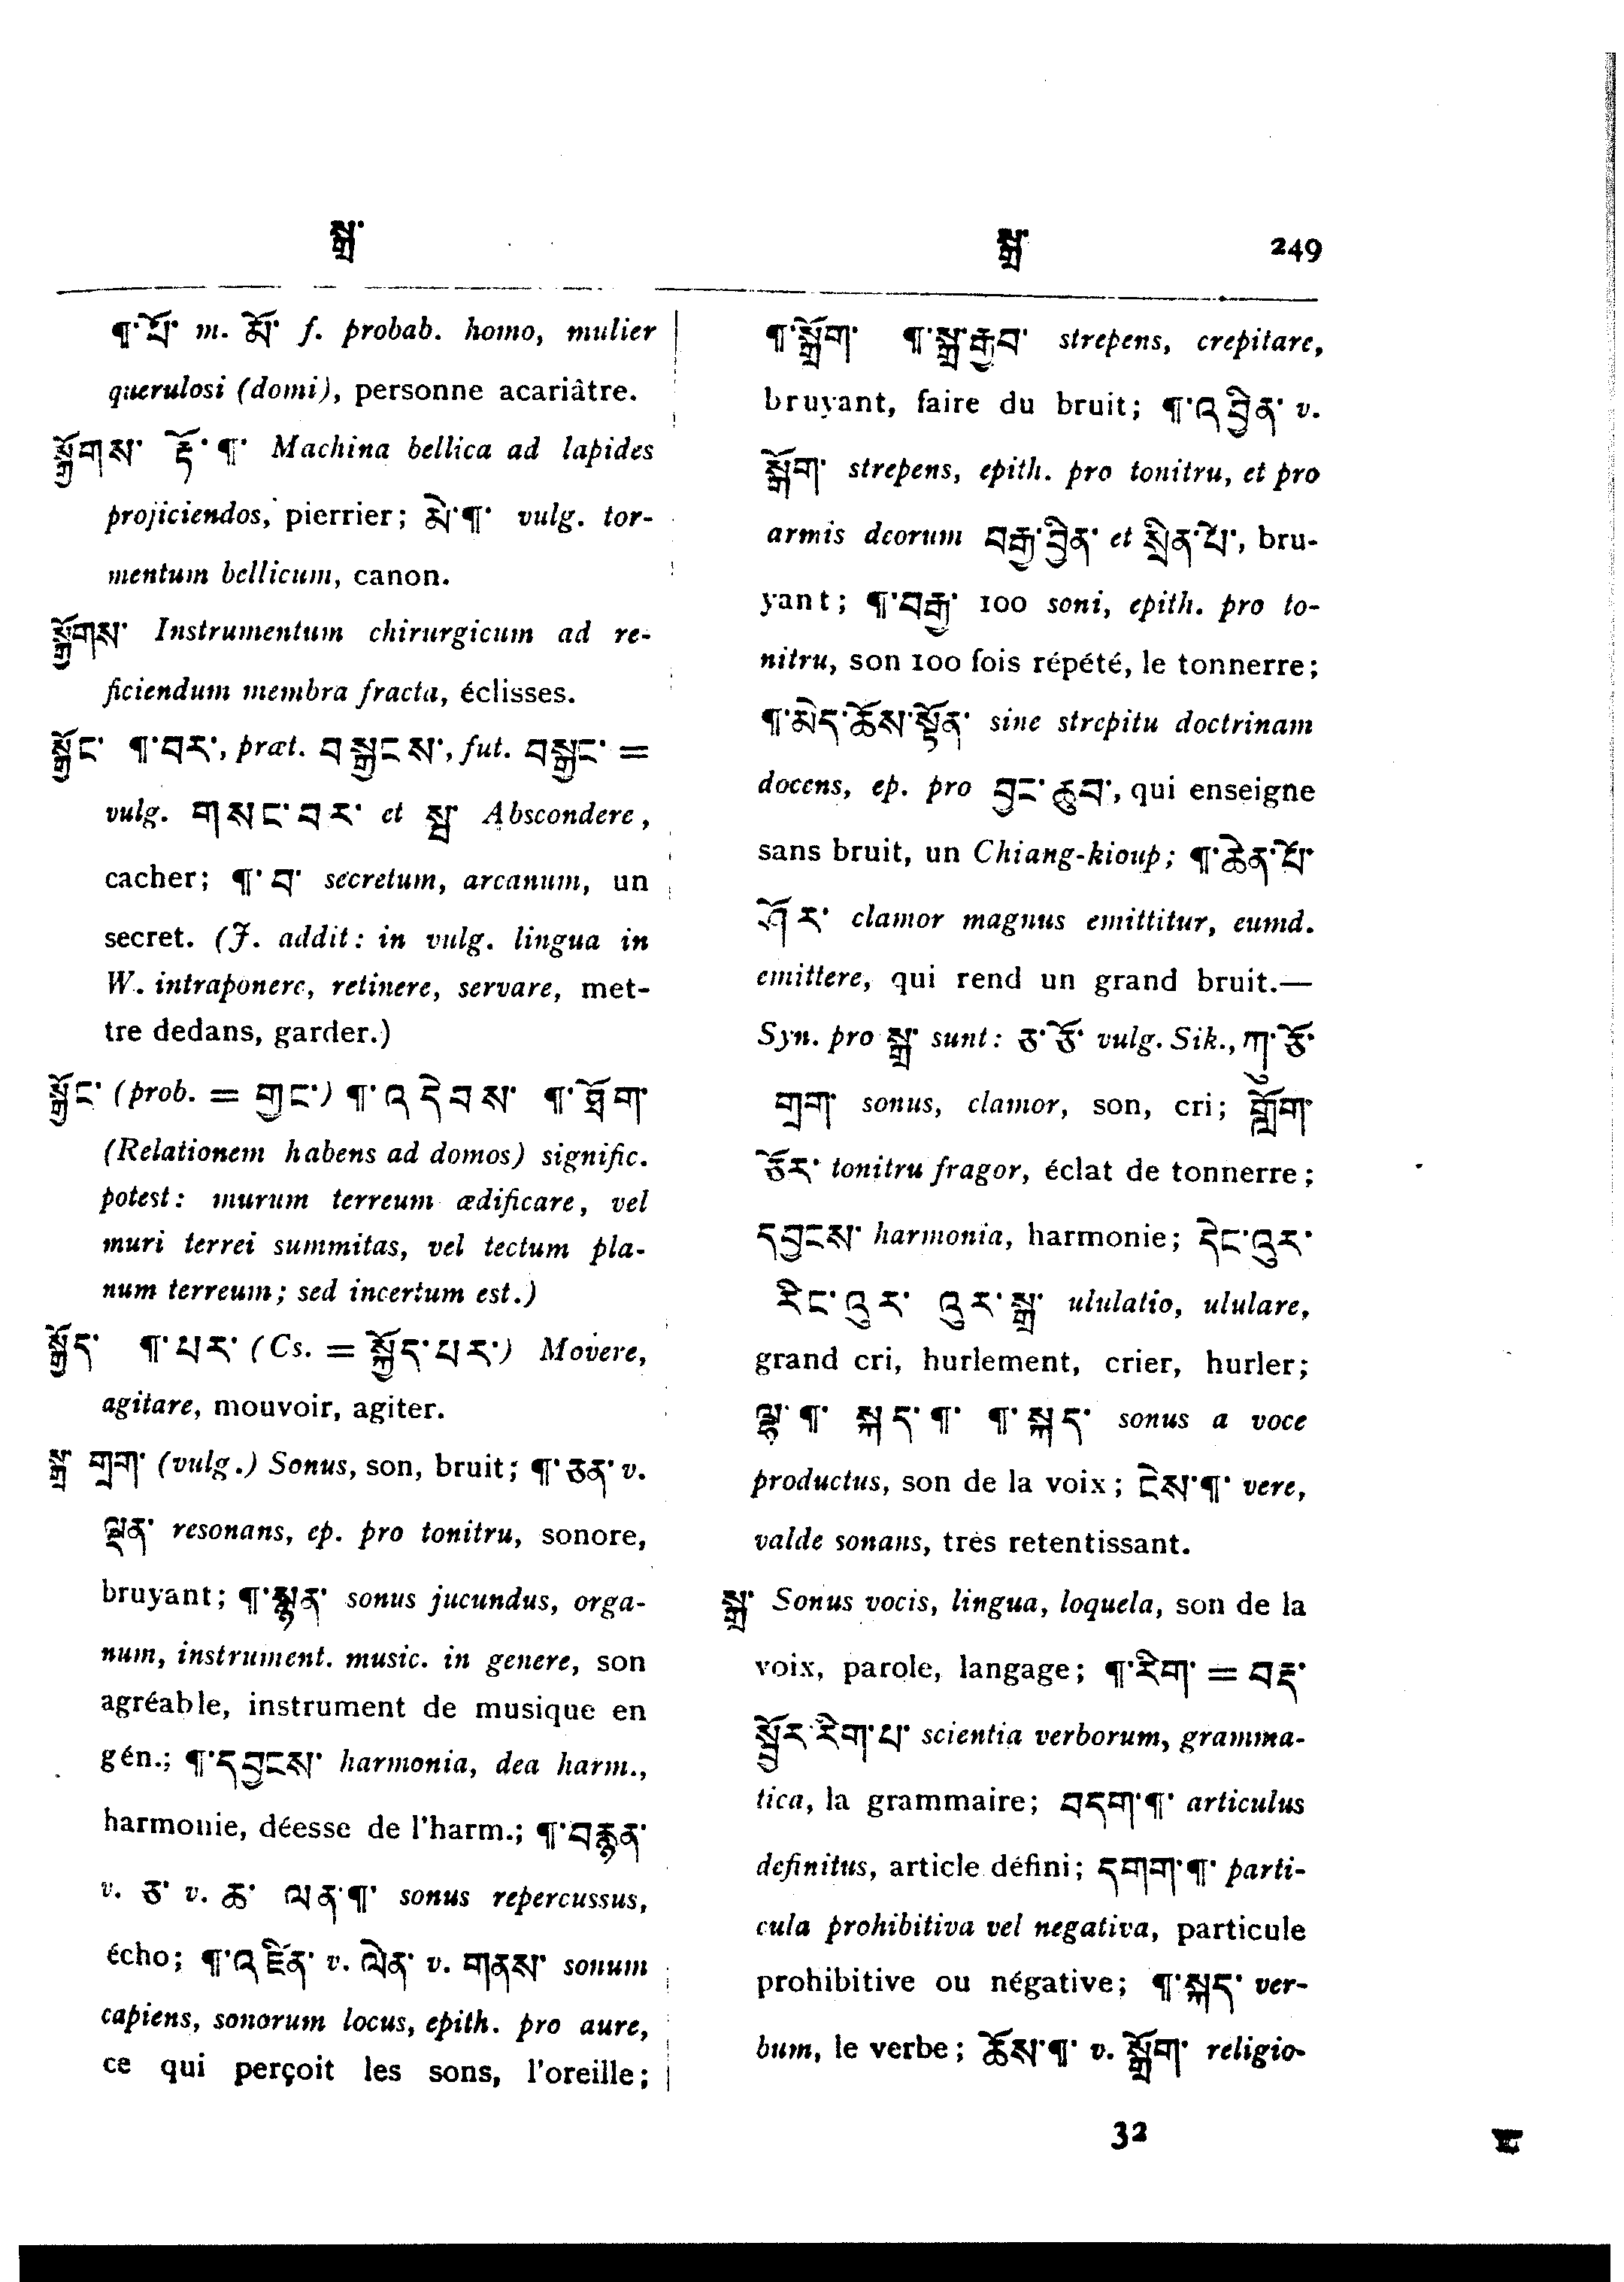 སྒྲ་
སྒྲ་ 249
¶་པོ་ m. མོ་ f. probab. homo, mulier
querulosi (domi), personne acariâtre.
སྒྱོགས་ རྡོ་¶་ Machina bellica ad lapides
projiciendos, pierrier; མེ་¶་ vulg. tor-
mentum bellicum, canon.
སྒྱོགས་ Instrumentum chirurgicum ad re-
ficiendum membra fracta, éclisses.
སྒྱོང་ ¶་བར་, præt. བསྒྱངས་, fut. བསྒྱང་ =
vulg. གསང་བར་ et སྦ་ Abscondere,
cacher; ¶་བ་ secretum, arcanum, un
secret. (J. addit: in vulg. lingua in
W. intraponere, retinere, servare, met-
tre dedans, garder.)
སྒྱོང་ (prob. = གྱང་) ¶་འདེབས་ ¶་ཐོག་
(Relationem habens ad domos) signific.
potest: murum terreum ædificare, vel
muri terrei summitas, vel tectum pla-
num terreum; sed incertum est.)
སྒྱོད་ ¶་པར་ (Cs. = སྐྱོད་པར་) Movere,
agitare, mouvoir, agiter.
སྒྲ་ གྲག་ (vulg.) Sonus, son, bruit; ¶་ཅན་ v.
ལྡན་ resonans, ep. pro tonitru, sonore,
bruyant; ¶་སྙན་ sonus jucundus, orga-
num, instrument. music. in genere, son
agréable, instrument de musique en
gén.; ¶་དབྱངས་ harmonia, dea harm.,
harmonie, déesse de l'harm.; ¶་བརྙན་
v. ཅ་ v. ཆ་ ལན་¶་ sonus repercussus,
écho; ¶་འཛིན་ v. ལེན་ v. གནས་ sonum
capiens, sonorum locus, epith. pro aure,
ce qui perçoit les sons, l'oreille;
¶་སྒྲོག་ ¶་སྒྲ་རྒྱབ་ strepens, crepitare,
bruyant, faire du bruit; ¶་འབྱིན་ v.
སྒྲོག་ strepens, epith. pro tonitru, et pro
armis deorum བརྒྱ་བྱིན་ et སྲིན་པོ་, bru-
yant; ¶་བརྒྱ་ 100 soni, epith. pro to-
nitru, son 100 fois répété, le tonnerre;
¶་མེད་ཆོས་སྟོན་ sine strepitu doctrinam
docens, ep. pro བྱང་ཆུབ་, qui enseigne
sans bruit, un Chiang-kioup; ¶་ཆེན་པོ་
ཤོར་ clamor magnus emittitur, eumd.
emittere, qui rend un grand bruit.—
Syn. pro སྒྲ་ sunt: ཅ་ཅོ་ vulg. Sik., ཀུ་ཅོ་
གྲག་ sonus, clamor, son, cri; གློག་
ཅོར་ tonitru fragor, éclat de tonnerre;
དབྱངས་ harmonia, harmonie; དེང་འུར་
རིང་འུར་ འུར་སྒྲ་ ululatio, ululare,
grand cri, hurlement, crier, hurler;
ལྟ་¶་ སྐད་¶་ ¶་སྐད་ sonus a voce
productus, son de la voix; ངེས་¶་ vere,
valde sonans, très retentissant.
སྒྲ་ Sonus vocis, lingua, loquela, son de la
voix, parole, langage; ¶་རིག་ = བརྡ་
སྤྲོར་རིག་པ་ scientia verborum, gramma-
tica, la grammaire; བདག་¶་ articulus
definitus, article défini; དགག་¶་ parti-
cula prohibitiva vel negativa, particule
prohibitive ou négative; ¶་སྐད་ ver-
bum, le verbe; ཆོས་¶་ v. སྒྲོག་ religio-
32